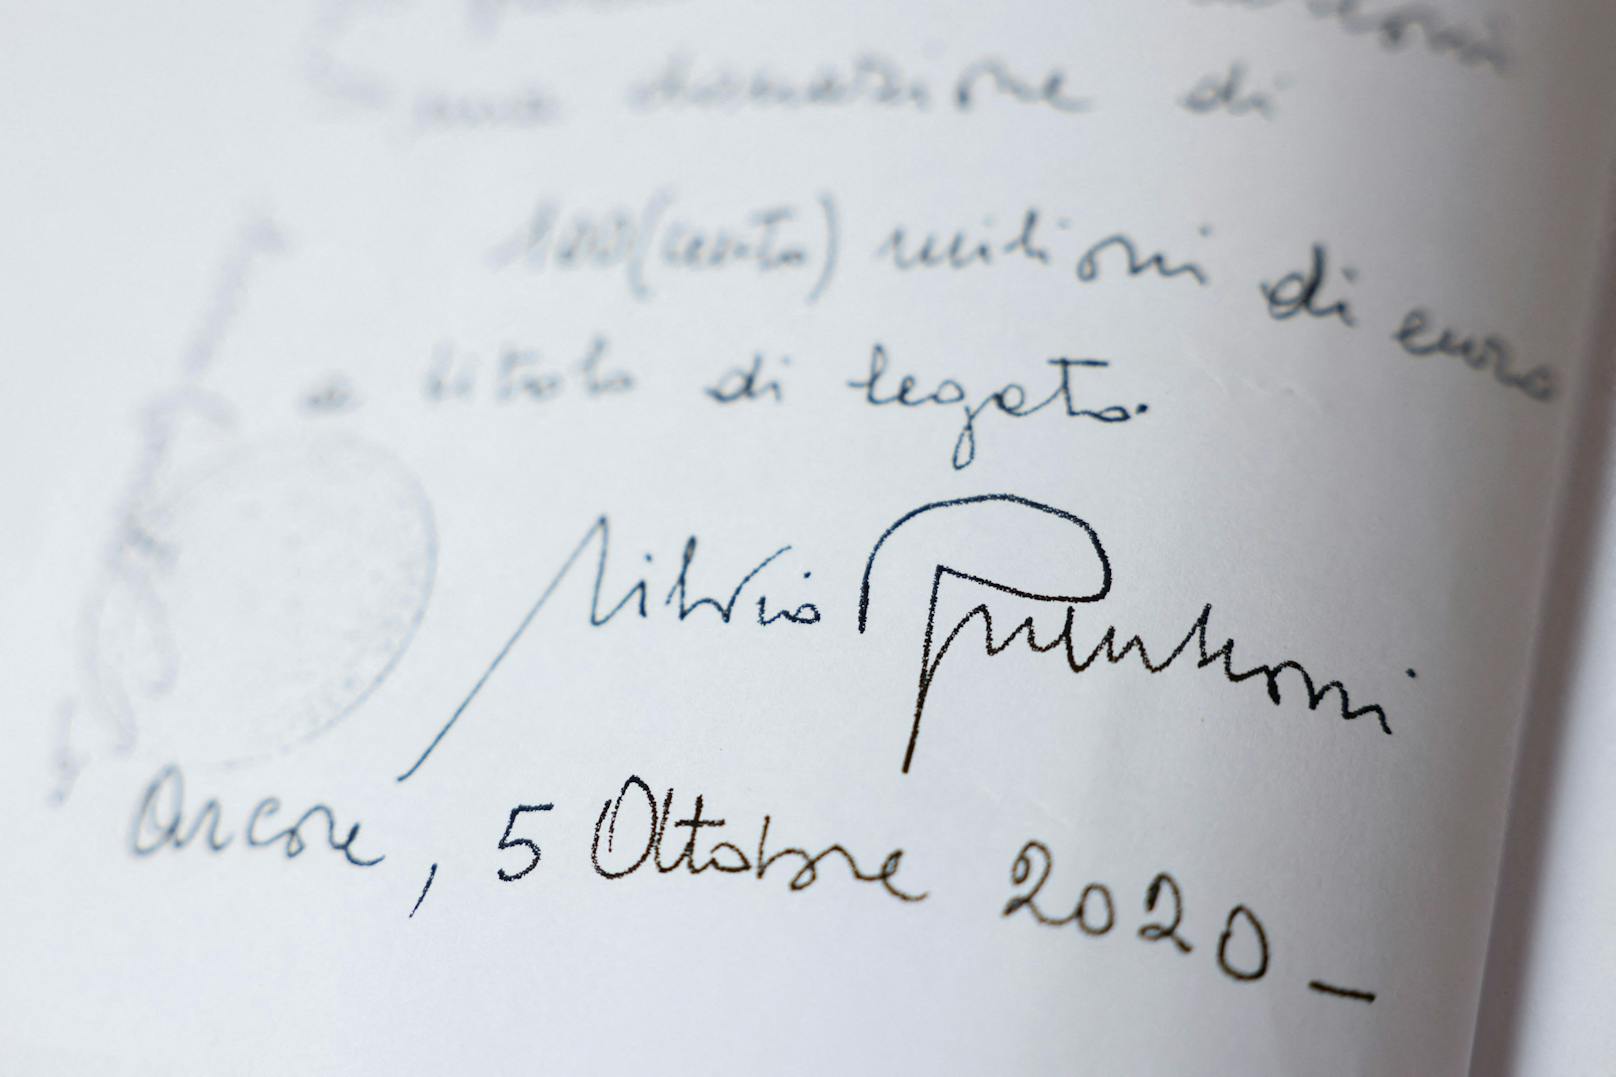 una donazione di
100 (cento) milioni di euro
a titolo di legato.
Silvio Berlusconi
Arcore, 5 Ottobre 2020_